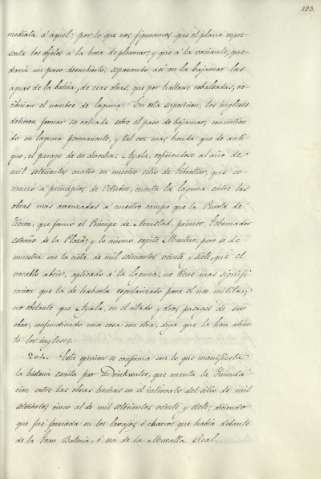 123.
mediata á aquel; por lo que nos figuramos, que el plano repre-
senta los objetos á la hora de pleamar, y que á la vaciante, que-
daria un paso descubierto, separando, así en la bajamar las
aguas de la bahía, de esas otras, que por hallarse embalsadas, re-
cibirian el nombre de laguna. En esta suposicion, los ingleses
debieron formar su calzada sobre el paso de bajamar, convirtien-
do su laguna permanente, y tal vez mas honda que lo anti-
guo, el parage de su derecha. Ayala, refiriendose al año de
mil setecientos cuatro en nuestro sitio de Gibraltar, que co-
menzó á principios de Octubre, cuenta la laguna entre las
obras mas avanzadas á nuestro campo que la Puerta de
Tierra, que formó el Príncipe de Armestad, primer Gobernador
estraño de la Plaza; y lo mismo repite Montero; pero se de-
muestra en la nota de mil setecientos veinte y siete, que el
vocablo abrir, aplicado á la laguna, no tiene mas signifi-
cacion que la de haberla regularizado para el uso militar;
no obstante que Ayala, en el citado y otros pasages de sus
obras, confundiendo una cosa con otra, diga que la han abier-
to los ingleses.
Esta opinion se confirma con lo que manifiesta
la historia escrita por Drinkwater, que cuenta la Inunda-
cion entre las obras hechas en el intervalo del sitio de mil
setecientos cinco al de mil setecientos veinte y siete; diciendo
que fué formada en los lavajos ó charcos que había delante
de la Gran Bateria, ó sea de la Muralla Real.